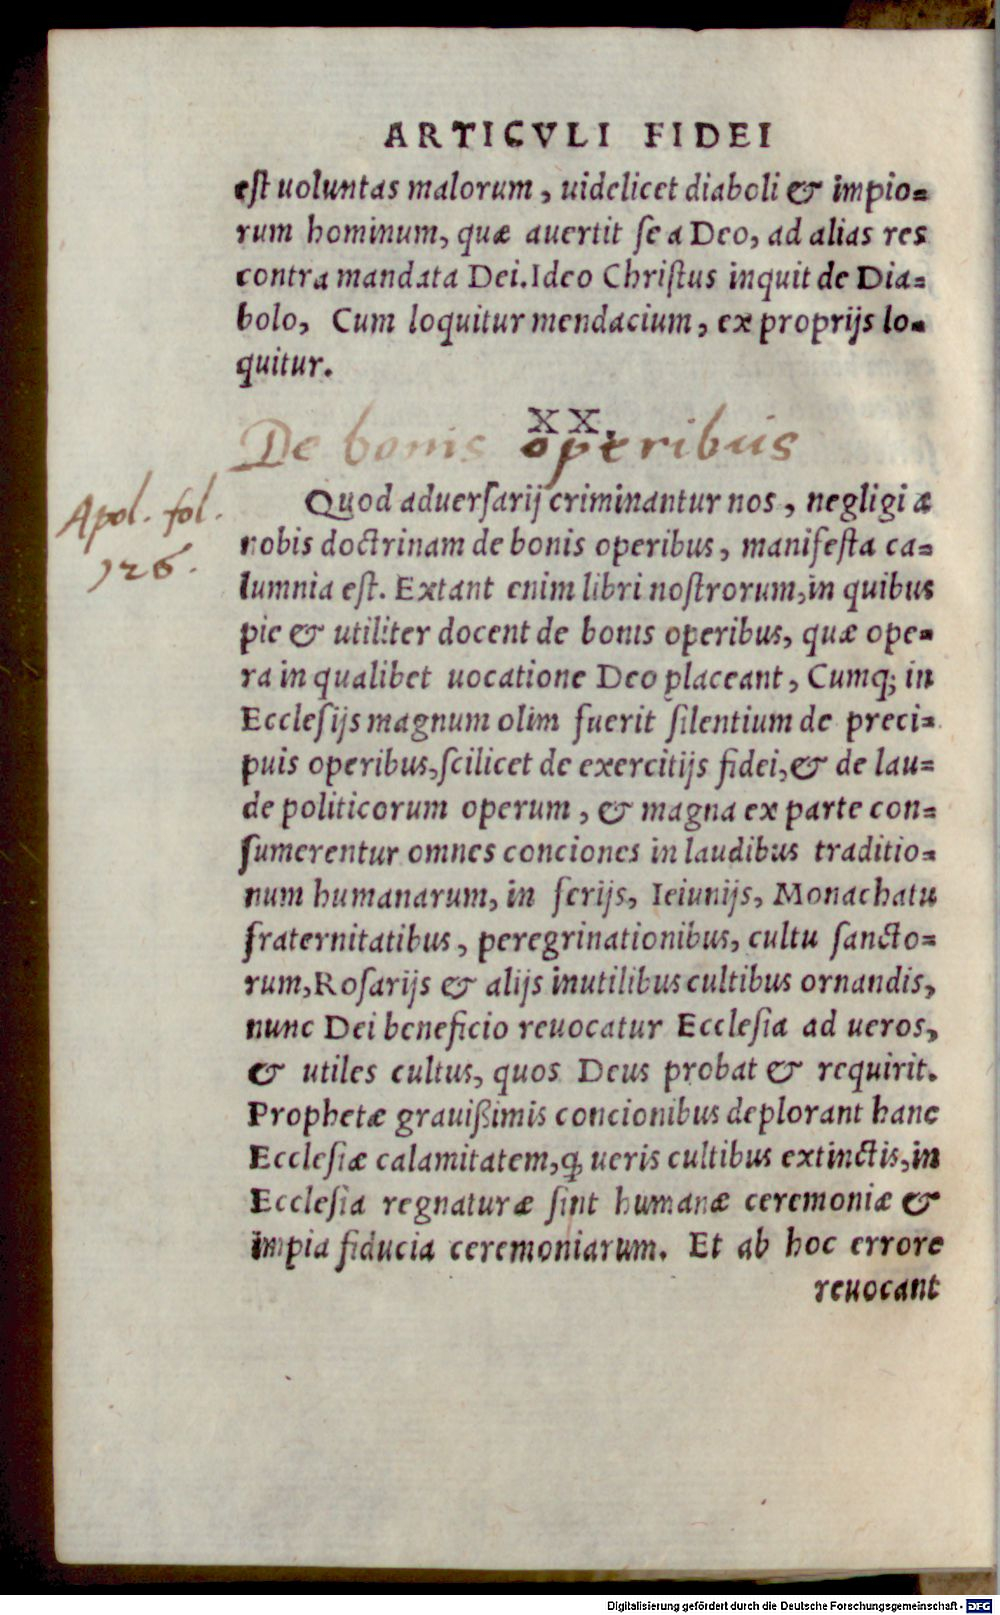 ARTICVLI FIDEI
est uoluntas malorum, uidelicet diaboli & impio=
rum hominum, quæ auertit se a Deo, ad alias res
contra mandata Dei. Ideo Christus inquit de Dia=
bolo, Cum loquitur mendacium, ex proprijs lo=
quitur.
XX.
De bonis operibus
Apol. fol.
126.
Quod aduersarij criminantur nos, negligi a
nobis doctrinam de bonis operibus, manifesta ca=
lumnia est. Extant enim libri nostrorum, in quibus
pie & utiliter docent de bonis operibus, quæ ope=
ra in qualibet uocatione Deo placeant, Cumq; in
Ecclesijs magnum olim fuerit silentium de preci=
puis operibus, scilicet de exercitijs fidei, & de lau=
de politicorum operum, & magna ex parte con=
sumerentur omnes conciones in laudibus traditio=
num humanarum, in ferijs, Ieiunijs, Monachatu
fraternitatibus, peregrinationibus, cultu sancto=
rum, Rosarijs & alijs inutilibus cultibus ornandis,
nunc Dei beneficio reuocatur Ecclesia ad ueros,
& utiles cultus, quos Deus probat & requirit.
Prophetæ grauißimis concionibus deplorant hanc
Ecclesiæ calamitatem, ꝙ ueris cultibus extinctis, in
Ecclesia regnaturæ sint humanæ ceremoniæ &
impia fiducia ceremoniarum. Et ab hoc errore
reuocant
Digitalisierung gefördert durch die Deutsche Forschungsgemeinschaft - DFG